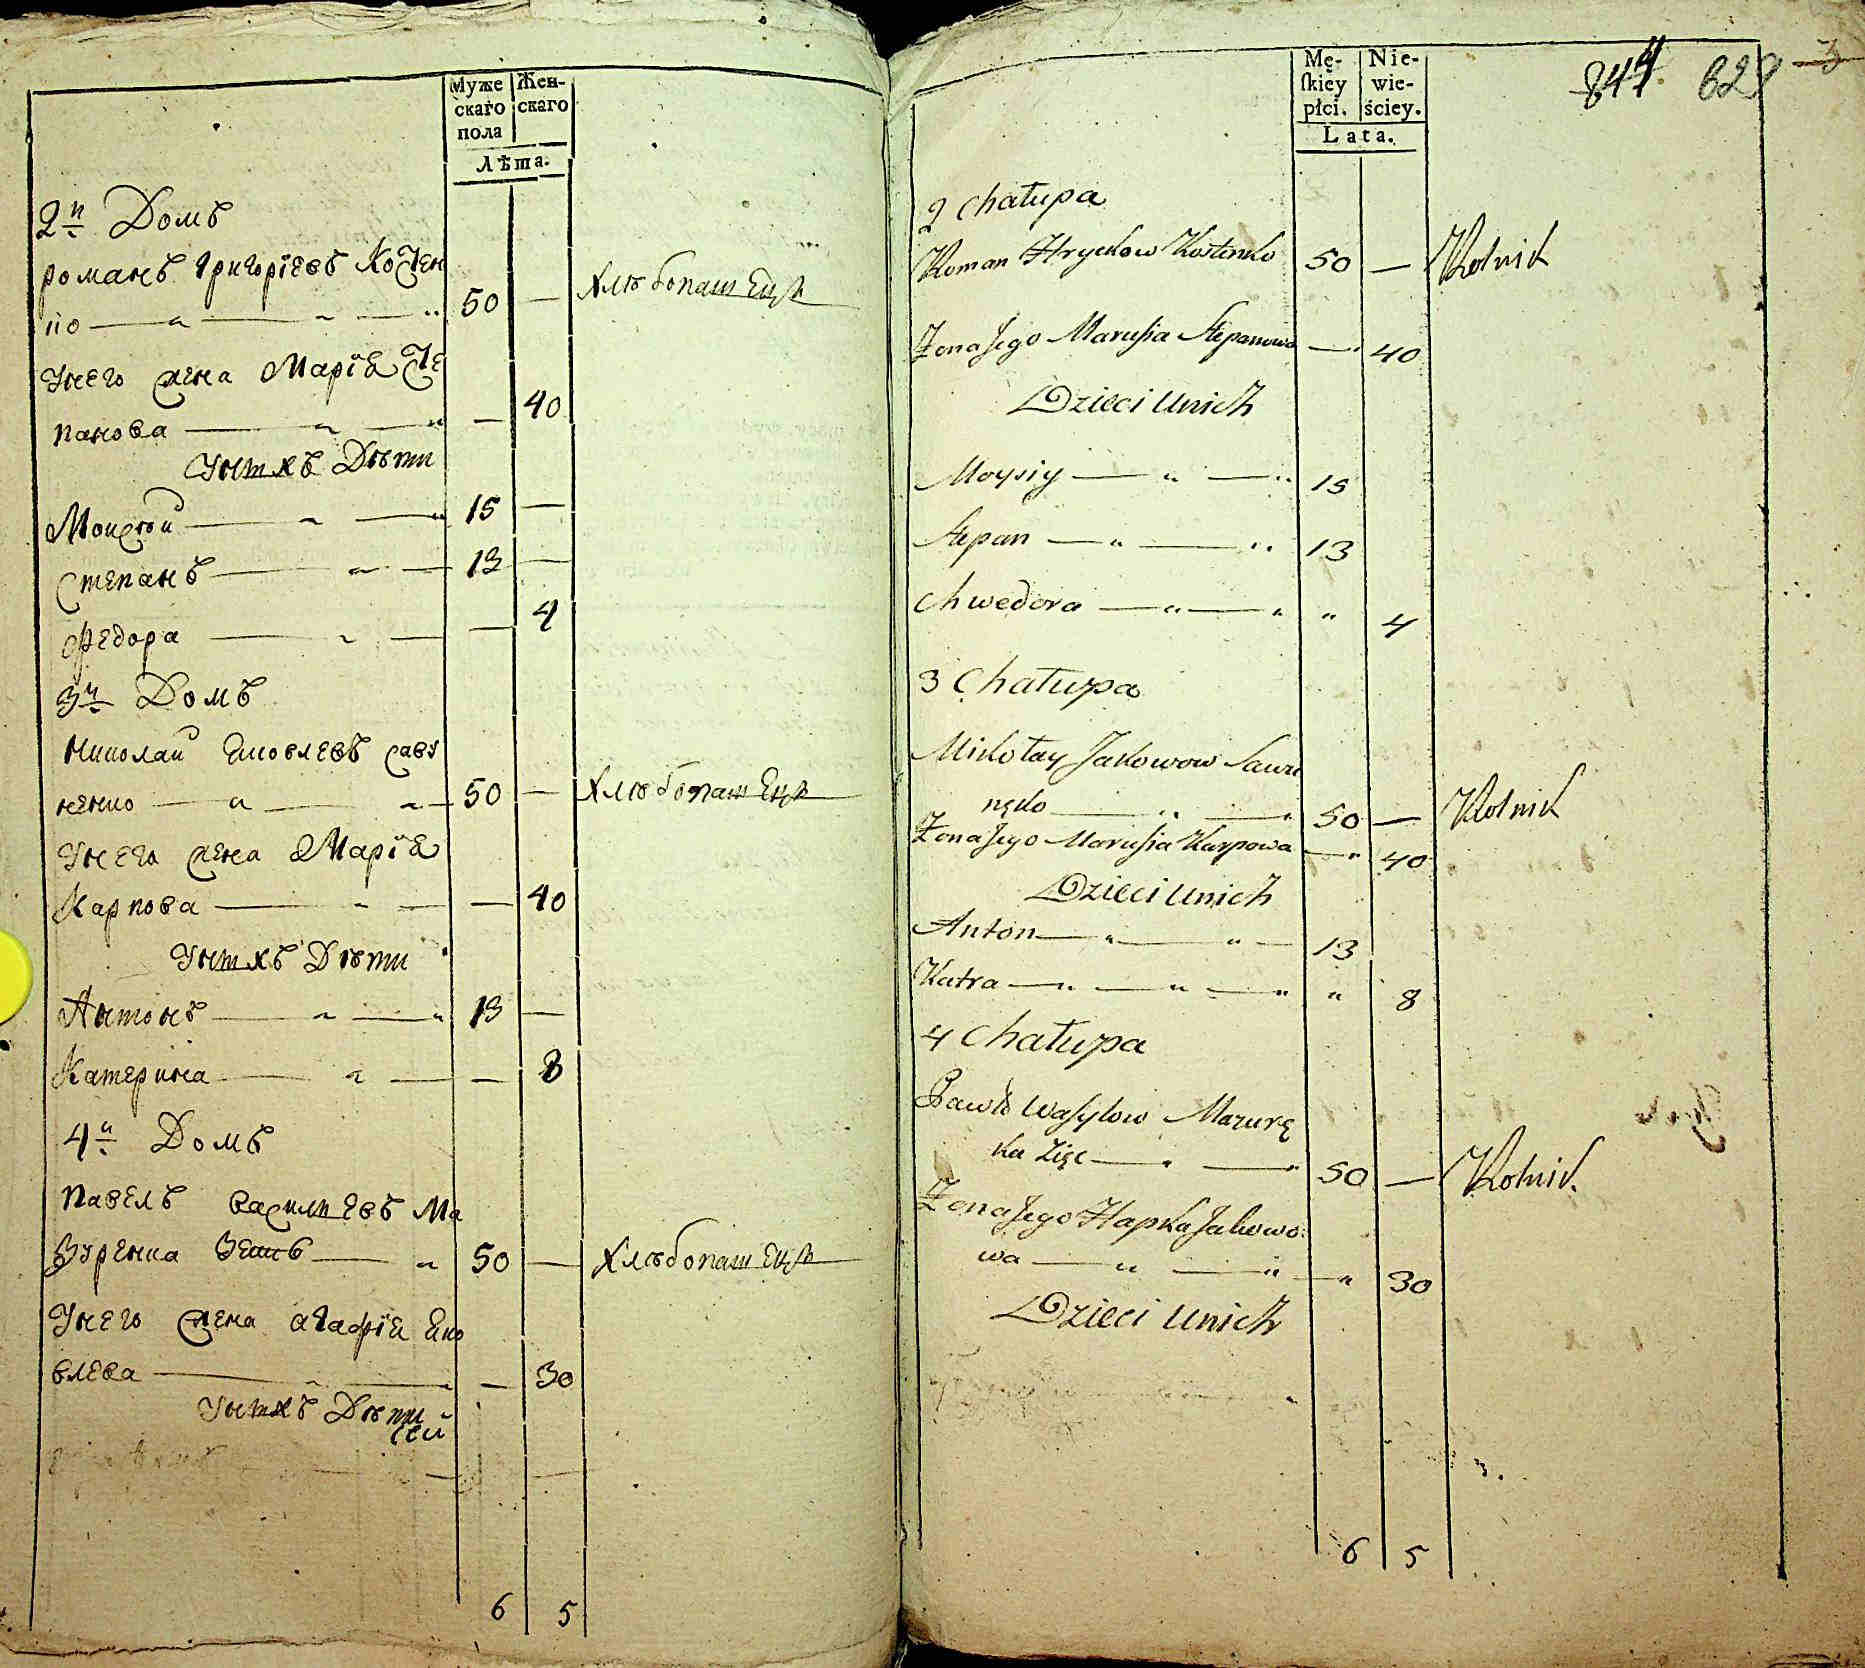 Муже
скаго
пола
Жен-
скаго
Лѣта.
2й Домъ
Романъ Григорїевъ Костен
ко 50 — Хлѣбопашецъ
У него жена Марїа Сте
панова — 40
У нихъ Дѣти
Мойсѣй 15 —
Степанъ 13 —
Федора — 4
3й Домъ
Николай Яковлевъ Саву
ненко 50 — Хлѣбопашецъ
У него жена Марїа
Карпова — 40
У нихъ Дѣти
Антонъ 13 —
Катерина — 8
4й Домъ
Павелъ Васильевъ Ма
зуренка Зеть 50 — Хлѣбопашецъ
У него жена Агафїя Яко
влева — 30
У нихъ Дѣти
6 5
Mę-
skiey
płci.
Nie-
wie-
ściey.
Lata.
844
2 Chałupa
Roman Hryckow Kostenko 50 — Rolnik
Żona Jego Marusia Stepanowa — 40
Dzieci u nich
Moysiy 15
Stepan 13
Chwedora " 4
3 Chałupa
Mikołay Jakowow Sawu
nęko 50 — Rolnik
Żona Jego Marusia Karpowa — 40
Dzieci u nich
Anton 13
Katra " 8
4 Chałupa
Pawło Wasylow Mazurę
ka Zięc 50 — Rolnik.
Żona Jego Hapka Jakowo
wa — 30
Dzieci u nich
6 5